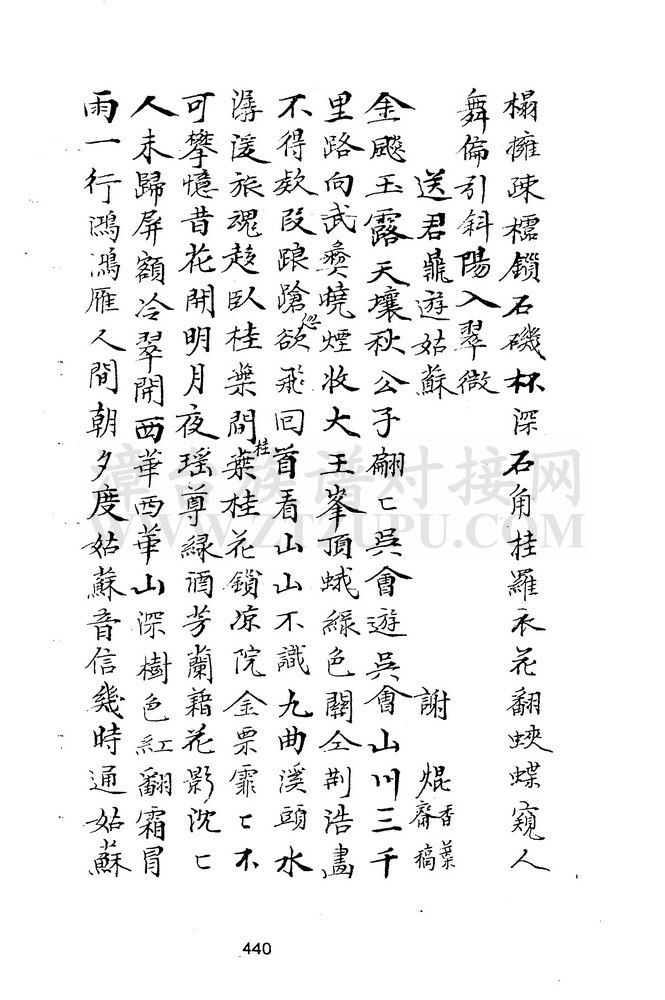 榻擁疎櫺鎖石磯杯深石角桂羅衣花翻蛺蝶窺人
舞偏引斜陽入翠微
送君鼎遊姑蘇 謝焜香葉齋稿
金飈玉露天壤秋公子翩〻吳會遊吳會山川三千
里路向武彝曉煙收大王峯頂蛾綠色關仝荆浩畫
不得欸段踉蹌欲飛回首看山山不識九曲溪頭水
潺湲旅魂趁臥桂葉間桂葉桂花鎖凉院金粟霏〻不
可攀憶昔花開明月夜瑶尊綠酒芳蘭藉花影沈〻
人未歸屏額冷翠開西華西華山深樹色紅翻霜冒
雨一行鴻鴻雁人間朝夕度姑蘇音信幾時通姑蘇
漳台族谱对接网
WWW.ZTZUPU.COM
440